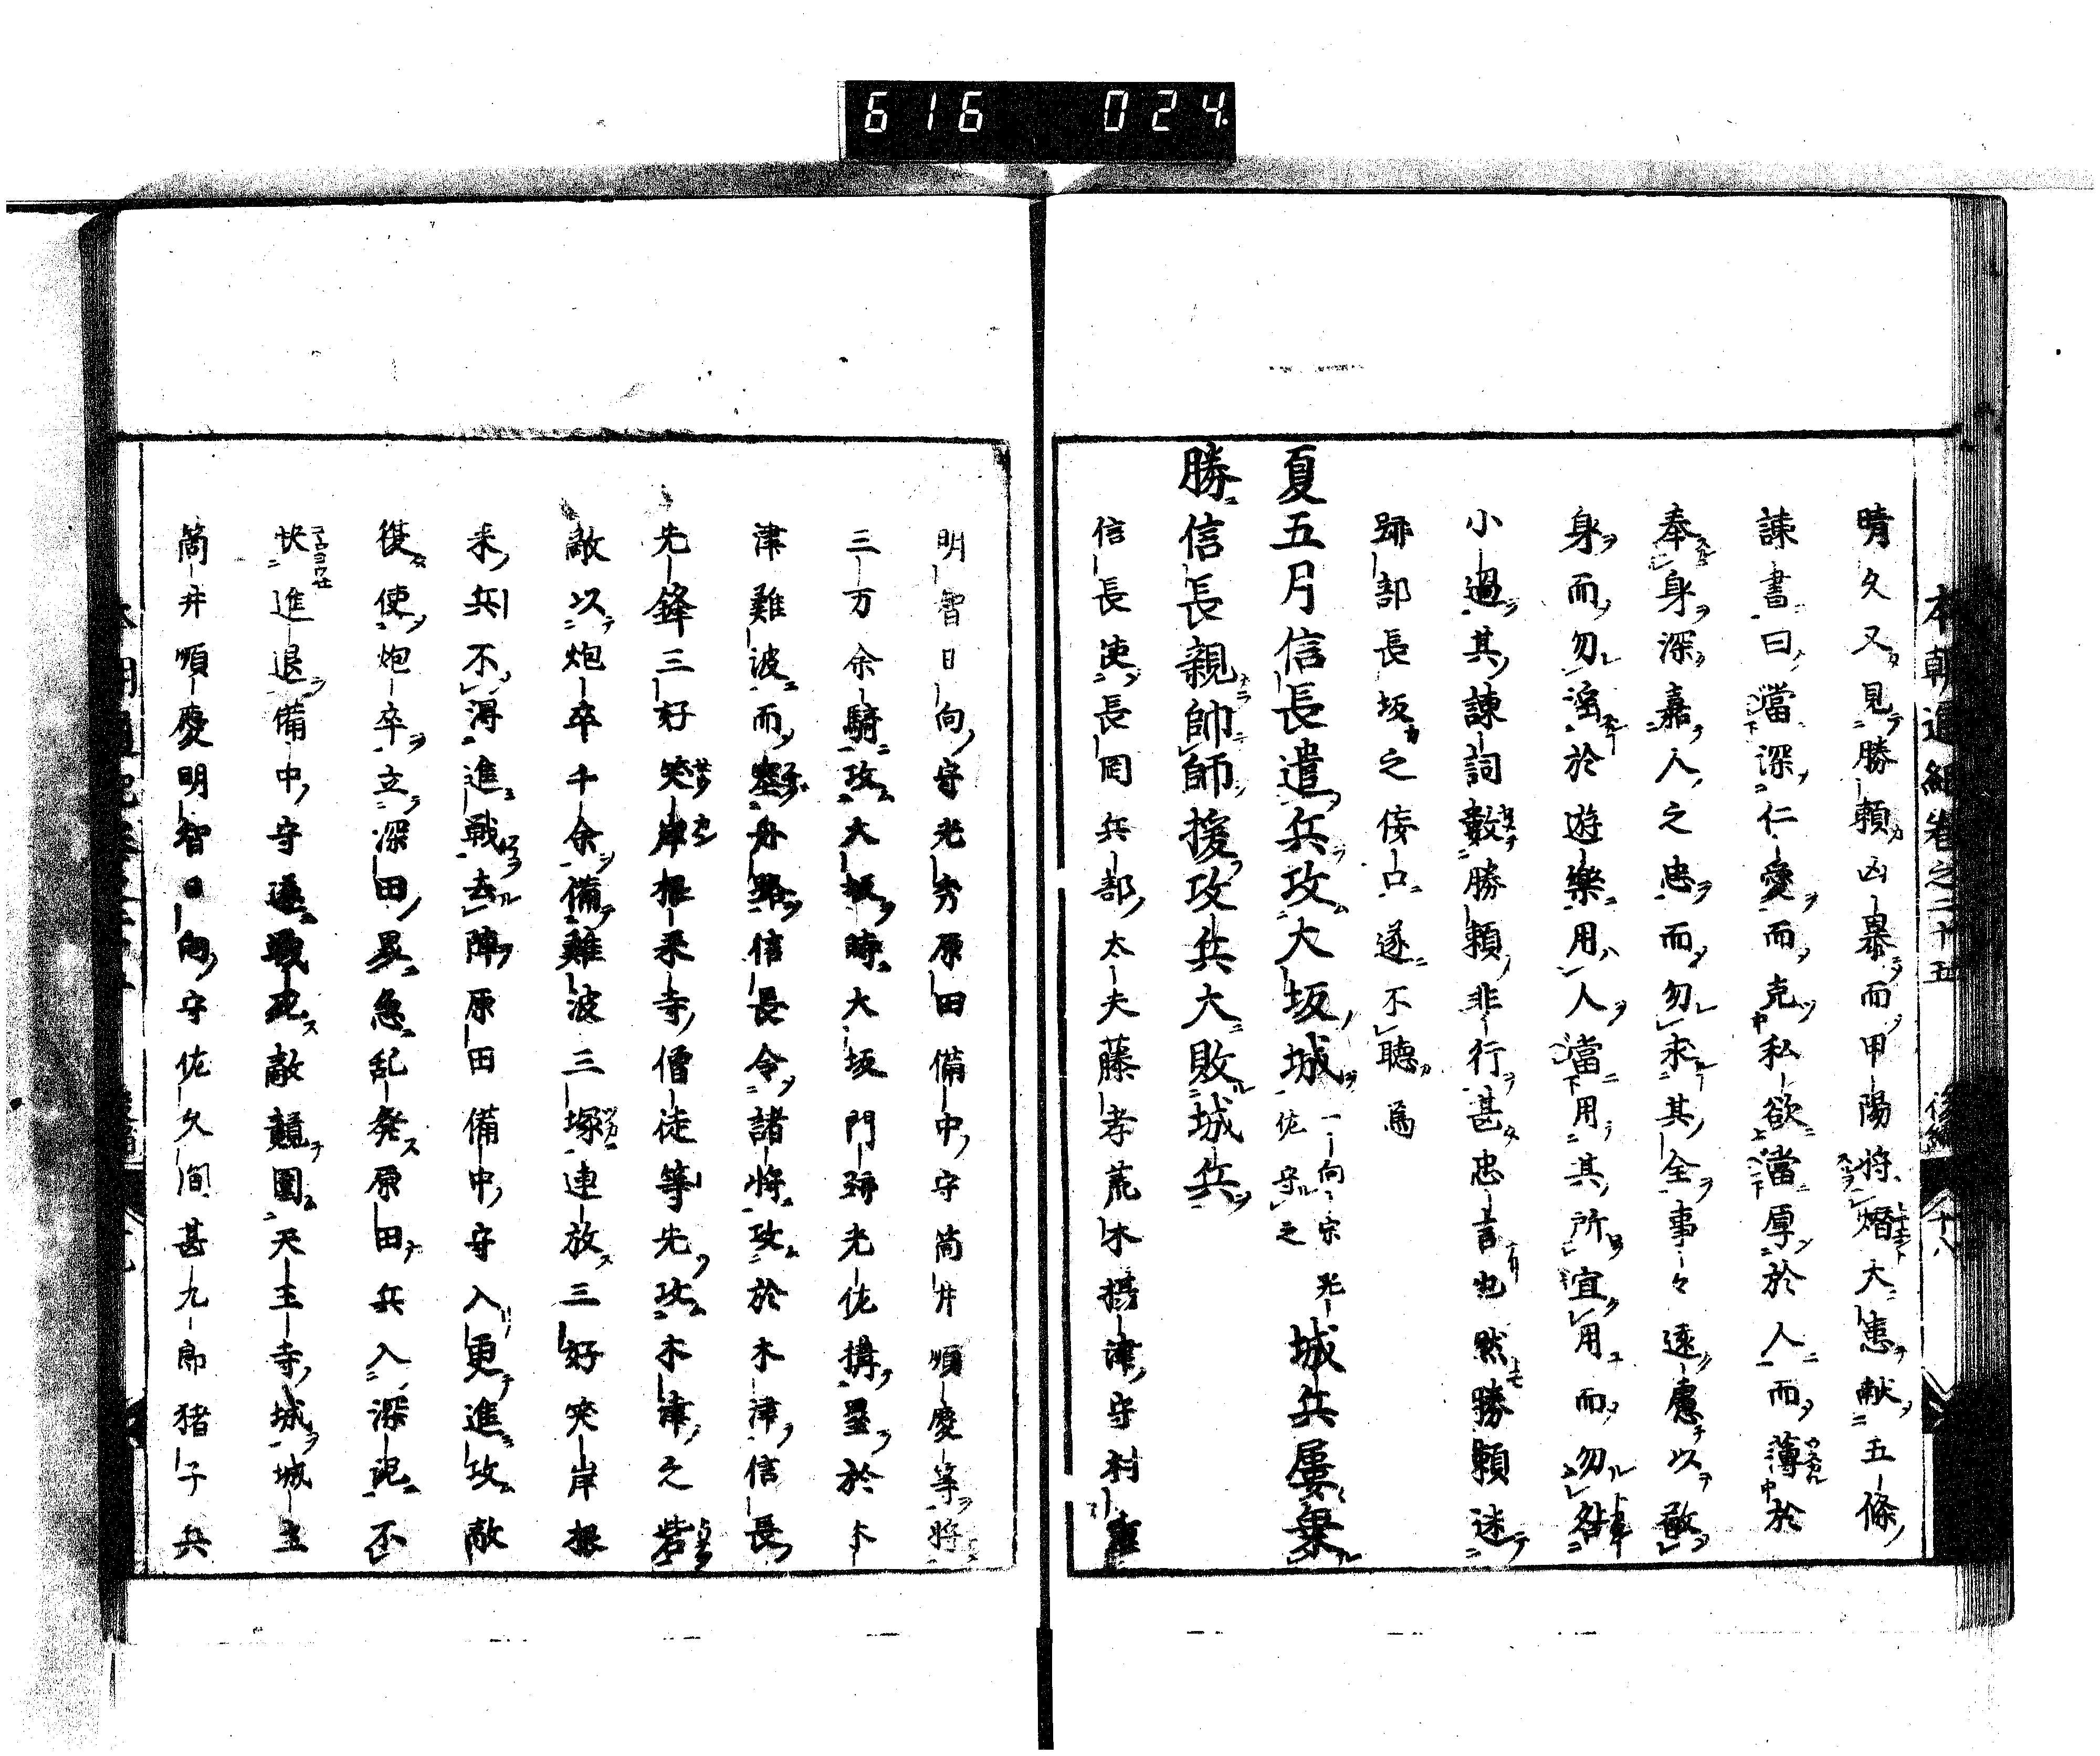 616 024
本朝通紀巻之二十五 後編 十八
晴久又見勝頼凶暴而甲陽将熸大患献五條
諫書曰當深仁愛而克私欲當厚於人而薄於
奉身深嘉人之忠而勿求其全事々遠慮以敬
身而勿淫於遊樂用人當用其所宜用而勿咎
小過其諫詞數勝頼非行甚忠言也然勝頼迷
跡部長坂之侫口遂不聴焉
夏五月信長遣兵攻大坂城 一向宗光佐守之 城兵屢棄
勝信長親帥師援攻兵大敗城兵
信長使長岡兵部太夫藤孝荒木摂津守村重
明智日向守光秀原田備中守筒井順慶等将
三万余騎攻大坂時大坂門跡光佐構壘於木
津難波而塞舟路信長令諸将攻於木津信長
先鋒三好笑岸根来寺僧徒等先攻木津之砦
敵以炮卒千余備難波三塚連放三好笑岸根
来兵不得進戦去陣原田備中守入更進攻敵
復使炮卒立深田畧急乱発原田兵入深泥不
快進退備中守遂戦死敵競圍天王寺城城主
筒井順慶明智日向守佐久間甚九郎猪子兵